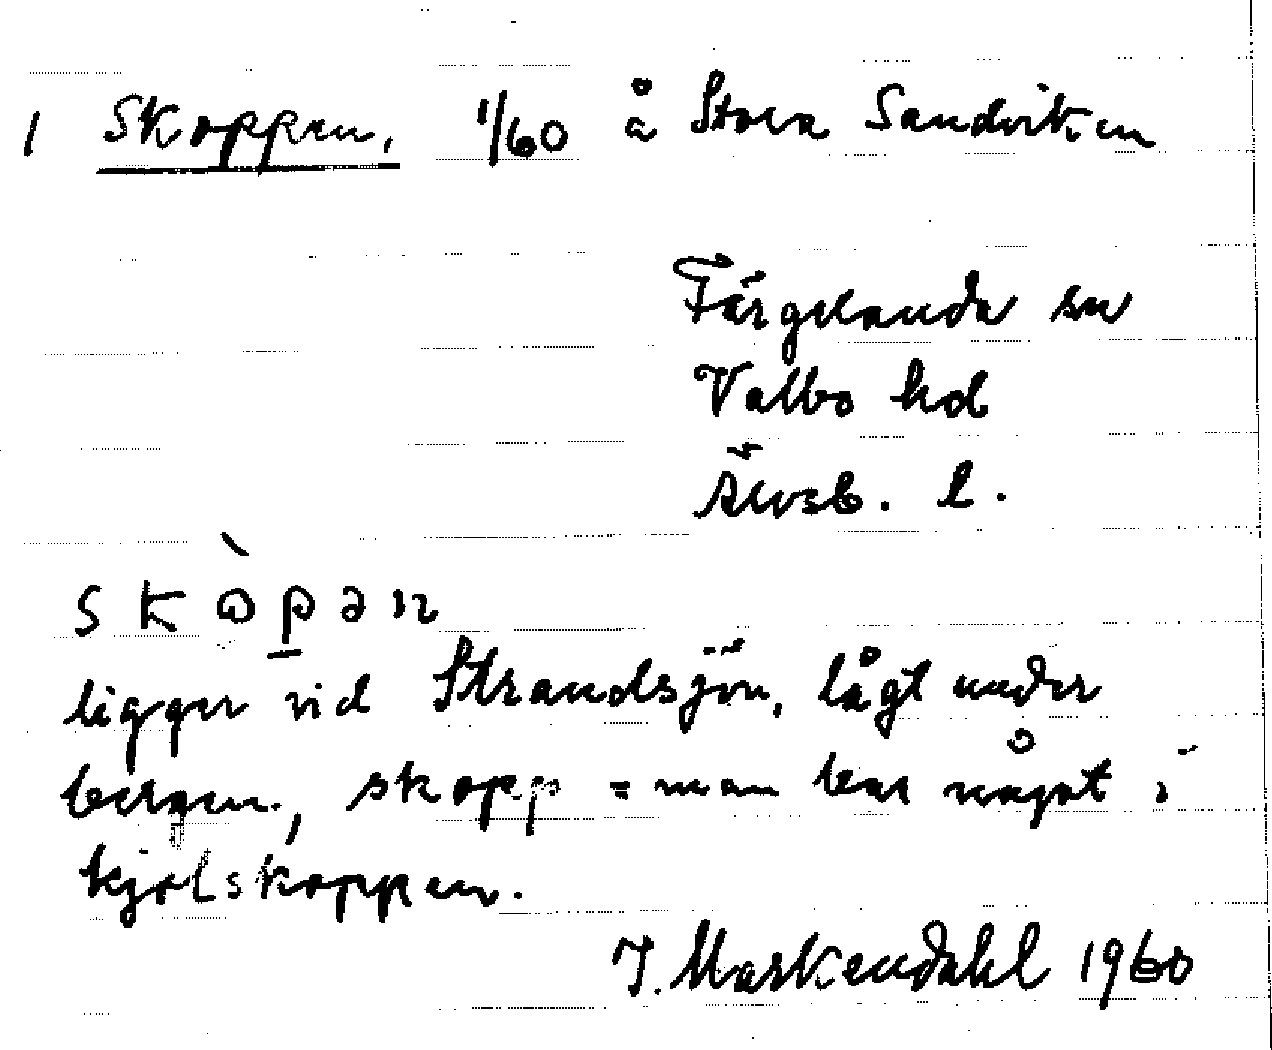 1 Skoppen, 1/60 å Stora Sandviken
Färgelanda sn
Valbo hd
Älvsb. l.
skòpən
ligger vid Strandsjön, lågt under
bergen, skopp = man bar något i
kjolskoppen.
J. Markendahl 1960